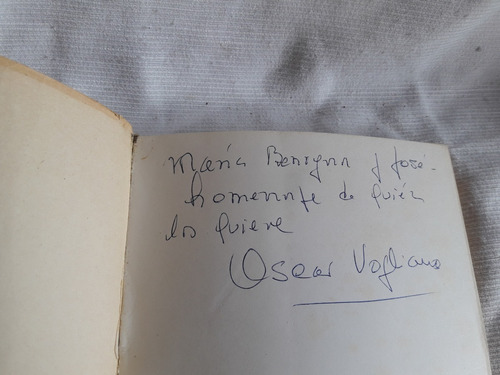 María Benigna y José.
homenaje de quién
los quiere
Oscar Vogliano